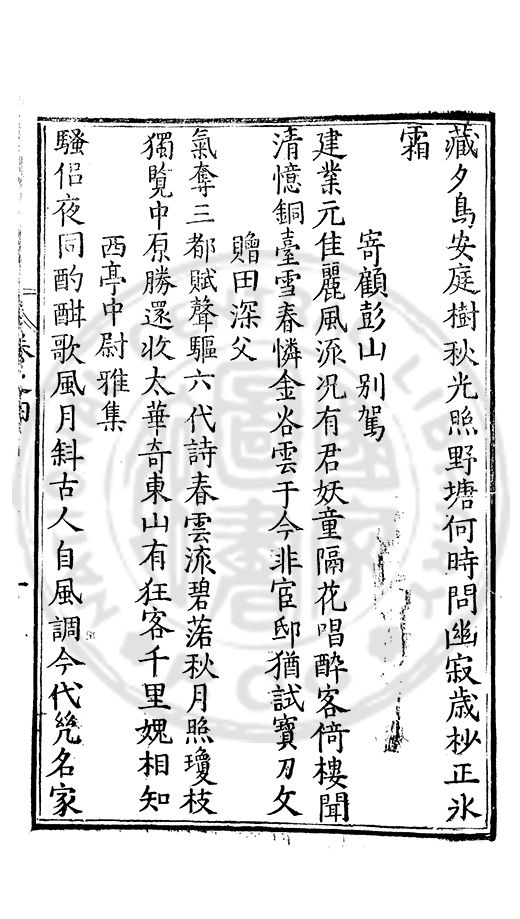 藏夕鳥安庭樹秋光照野塘何時問幽寂歲杪正氷
霜
寄顧彭山別駕
建業元佳麗風流况有君妖童隔花唱醉客倚樓聞
清憶銅臺雪春憐金谷雲于今非宦邸猶試寶刀文
贈田深父
氣奪三都賦聲驅六代詩春雲流碧落秋月照瓊枝
獨覽中原勝還收太華奇東山有狂客千里媿相知
西亭中尉雅集
騷侣夜同酌酣歌風月斜古人自風調今代幾名家